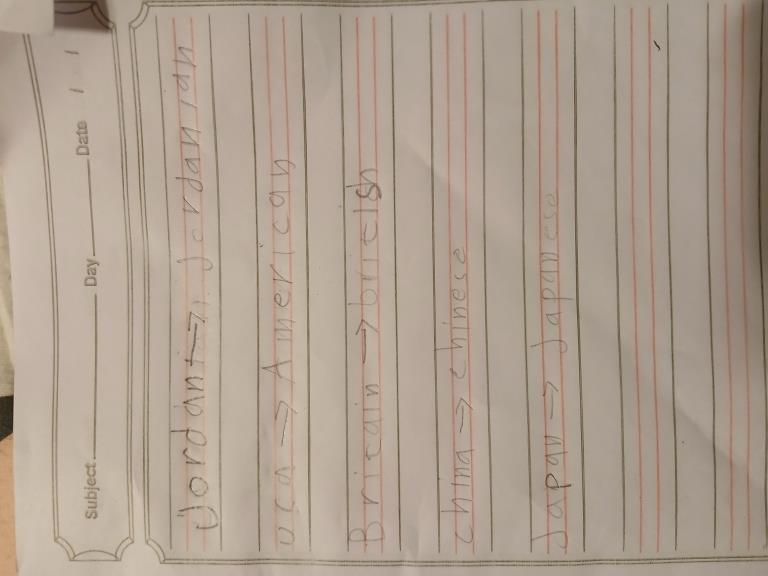 Subject Day Date / /
Jordan → Jordanian
usa → American
Britain → british
china → chinese
Japan → Japanese